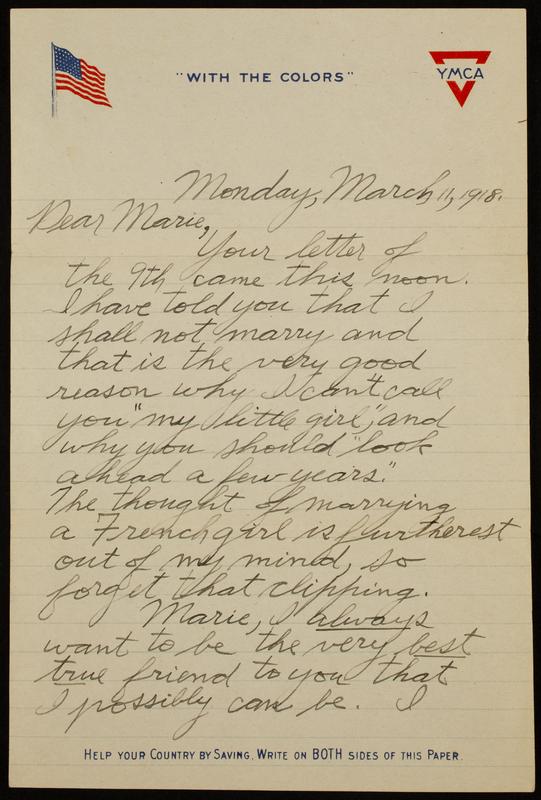 "WITH THE COLORS"
YMCA
Monday, March 11, 1918.
Dear Marie,
Your letter of
the 9th came this noon.
I have told you that I
shall not marry and
that is the very good
reason why I can't call
you "my little girl", and
why you should "look
ahead a few years."
The thought of marrying
a French girl is furtherest
out of my mind, so
forget that clipping.
Marie, I always
want to be the very best
true friend to you that
I possibly can be. I
HELP YOUR COUNTRY BY SAVING. WRITE ON BOTH SIDES OF THIS PAPER.